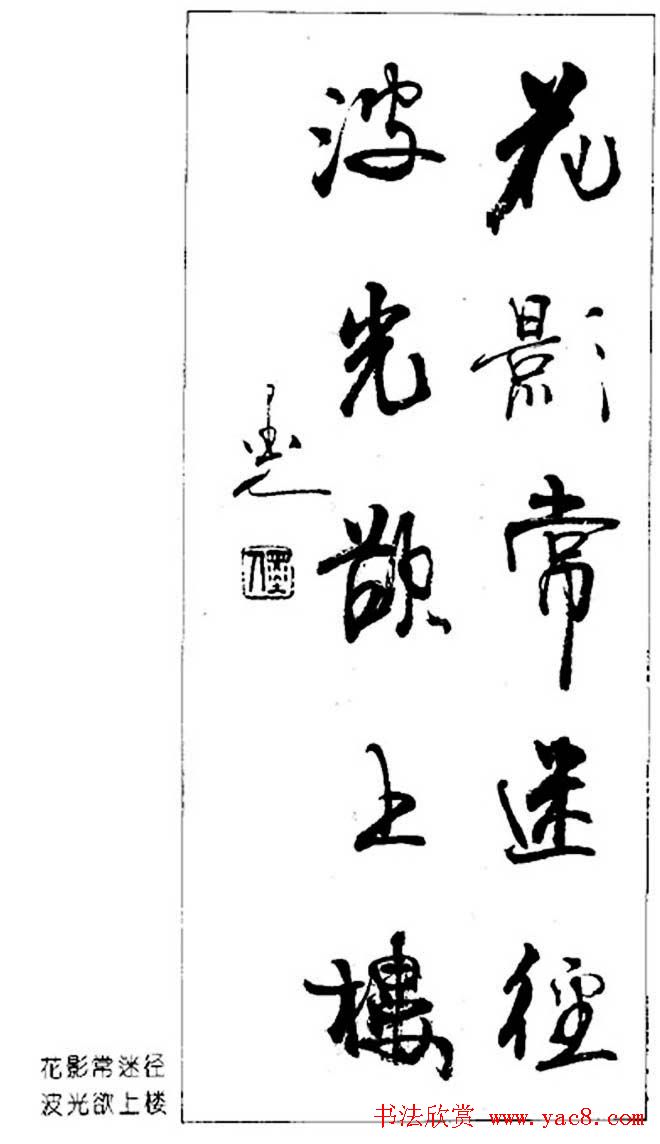 花影常迷径
波光欲上樓
花影常迷径
波光欲上楼
书法欣赏 www.yac8.com